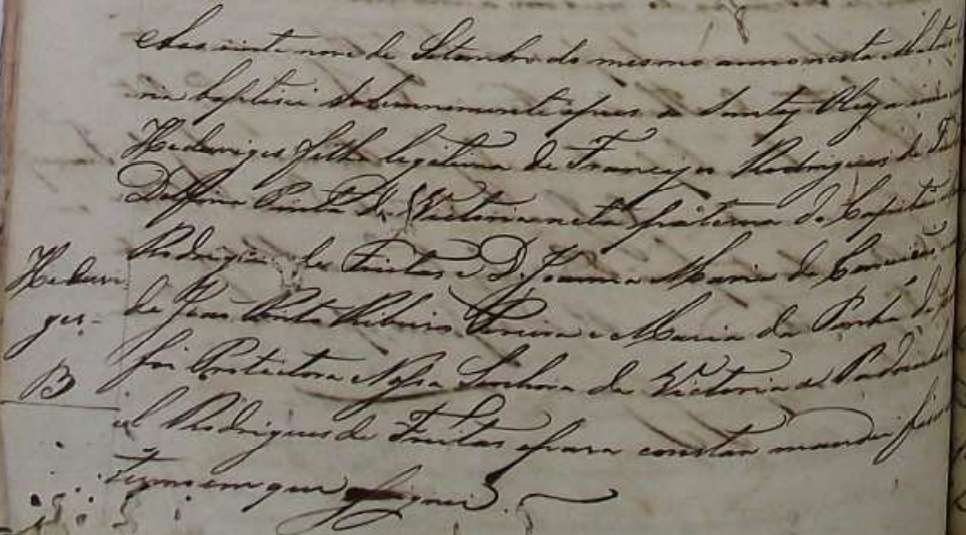 Aos vinte nove de Setembro do mesmo anno nesta Matri
ria baptisei solemnemente e pus os Santos
Heduviges filha legitima de Francisco Rodrigues de
Delfina Pinta da Victoria neta paterna do Capitão
Rodrigues de Freitas e D. Joanna Maria da Conceição
Heduvi
de João Pinto Ribeiro Pereira e Maria da Penha de
ges
foi Protectora Nossa Senhora da Victoria e Padrinho
B
el Rodrigues de Freitas e para constar mandei faser
termo em que assignei.